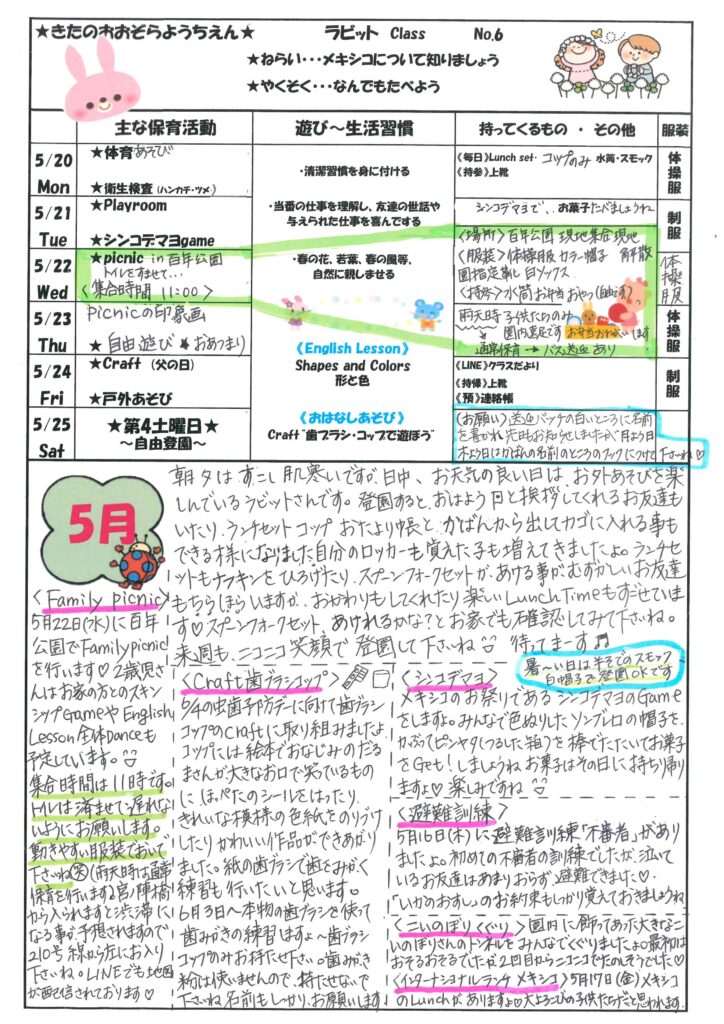 ★きたのおおぞらようちえん★
ラビット Class No.6
★ねらい・・・メキシコについて知りましょう
★やくそく・・・なんでもたべよう
主な保育活動
遊び～生活習慣
持ってくるもの ・ その他
服装
5/20
Mon
★体育あそび
★衛生検査(ハンカチ・ツメ)
・清潔習慣を身に付ける
《毎日》Lunch set・コップのみ 水筒・スモック
《持参》上靴
体操服
5/21
Tue
★Playroom
★シンコデマヨgame
・当番の仕事を理解し、友達の世話や
与えられた仕事を喜んでする
シンコデマヨで・・お菓子たべましょうね
制服
5/22
Wed
★picnic in 百年公園
トイレをすませて・・・
〈集合時間 11:00〉
・春の花、若葉、春の風等、
自然に親しませる
〈場所〉百年公園 現地集合現地
〈服装〉体操服 カラー帽子 解散
園指定靴 白ソックス
〈持参〉水筒 お弁当 おやつ(自由です)
体操服
5/23
Thu
picnicの印象画
★自由遊び ★おあつまり
雨天時 子供たちのみ
園内遠足です お弁当おねがいします
通常保育→バス送迎あり
体操服
5/24
Fri
★Craft (父の日)
★戸外あそび
《English Lesson》
Shapes and Colors
形と色
《LINE》クラスだより
《持帰》上靴
《預》連絡帳
制服
5/25
Sat
★第4土曜日★
～自由登園～
《おはなしあそび》
Craft“歯ブラシ・コップで遊ぼう”
(お願い)送迎バッチの白いところに名前
を書かれ先日もお知らせしましたが月よう日
木よう日はかばんの名前のところのフックにつけて下さいね♡
5月
朝夕はすこし肌寒いですが、日中、お天気の良い日は、お外あそびを楽
しんでいるラビットさんです。登園すると、おはよう 日と挨拶してくれるお友達も
いたり、ランチセット コップ おたより帳と、かばんから出してカゴに入れる事も
できる様になりました自分のロッカーも覚えた子も増えてきましたよ。ランチセ
ットもナフキンをひろげたり、スプーンフォークセットが、あける事がむずかしいお友達
もちらほらいますが、おかわりもしてくれたり 楽しいLunch Timeもすごせていま
す♡スプーンフォークセット、あけれるかな?とお家でも確認してみて下さいね。
来週も、ニコニコ笑顔で登園して下さいね 待ってまーす♬
暑～い日は半そでのスモック
白帽子で登園OKです
〈Family picnic〉
5月22日(水)に百年
公園でFamily picnic
を行います♡2歳児さ
んはお家の方とのスキン
シップGameやEnglish
Lesson 全体Danceも
予定しています。
集合時間は11時です。
トイレは済ませて遅れな
いようにお願いします。
動きやすい服装でおいで
下さいね(雨天時は通常
保育を行います)宮ノ陣橋
から入られますと渋滞に
なる事が予想されますので
210号線から左にお入り
下さいね。LINEでも地図
が配信されております♡
〈Craft歯ブラシコップ〉
6/4の虫歯予防デーに向けて歯ブラシ
コップのCraftに取り組みましたよ
コップには絵本でおなじみのだる
まさんが大きなお口で笑っているもの
に ほっぺたのシールをはったり、
きれいな模様の色紙をのりづけ
したりかわいい作品ができあがり
ました。紙の歯ブラシで歯をみがく
練習も行いたいと思います。
6月3日～本物の歯ブラシを使って
歯みがきの練習はすよ～歯ブラシ
コップのみお持たせ下さい。歯みがき
粉は使いませんので、持たせないで
下さいね 名前もしっかりお願いします
〈シンコデマヨ〉
メキシコのお祭りである シンコデマヨのGame
をしますよ。みんなで色ぬりしたソンブレロの帽子を、
かぶってピンヤタ(つるした箱)を棒でたたいてお菓子
をGet!しましょうねお菓子はその日に持ち帰り
ますよ♡ 楽しみですね
〈避難訓練〉
5月16日(木)に避難訓練「不審者」があり
ましたよ。初めての不審者の訓練でしたが、泣いて
いるお友達はあまりおらず、避難できました♡
「いかのおすし」のお約束もしっかり覚えておきましょうね
〈こいのぼりくぐり〉園内に飾ってあった大きなこ
いのぼりさんのトンネルをみんなでくぐりましたよ。最初は
おそるおそるでしたが2回目からニコニコでたのしそうでした♡
〈インターナショナルランチ メキシコ〉5月17日(金)メキシコ
のLunchがありますよ♡大よろこびの子供たちだと思われます。